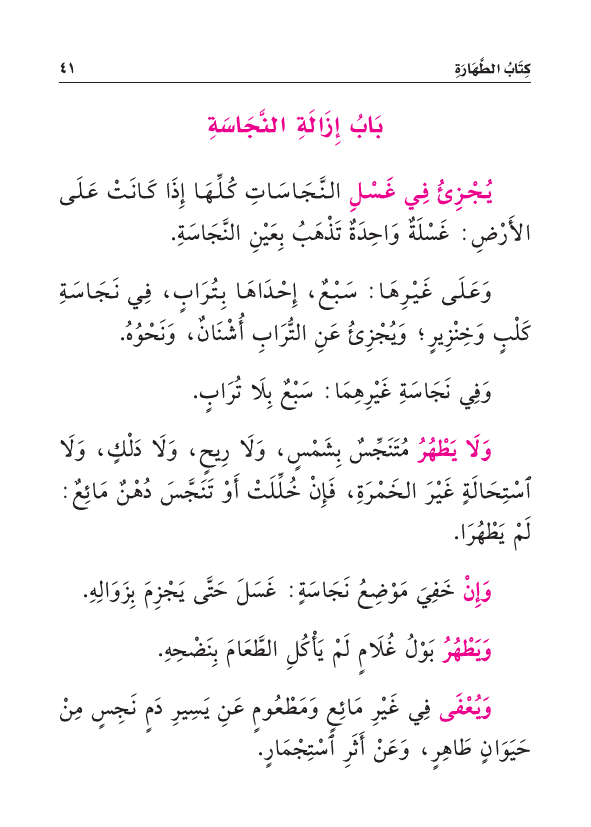 كِتَابُ الطَّهَارَةِ ٤١
بَابُ إِزَالَةِ النَّجَاسَةِ
يُجْزِئُ فِي غَسْلِ النَّجَاسَاتِ كُلِّهَا إِذَا كَانَتْ عَلَى
الأَرْضِ: غَسْلَةٌ وَاحِدَةٌ تَذْهَبُ بِعَيْنِ النَّجَاسَةِ.
وَعَلَى غَيْرِهَا: سَبْعٌ، إِحْدَاهَا بِتُرَابٍ، فِي نَجَاسَةِ
كَلْبٍ وَخِنْزِيرٍ؛ وَيُجْزِئُ عَنِ التُّرَابِ أُشْنَانٌ، وَنَحْوُهُ.
وَفِي نَجَاسَةِ غَيْرِهِمَا: سَبْعٌ بِلَا تُرَابٍ.
وَلَا يَطْهُرُ مُتَنَجِّسٌ بِشَمْسٍ، وَلَا رِيحٍ، وَلَا دَلْكٍ، وَلَا
ٱسْتِحَالَةٍ غَيْرَ الخَمْرَةِ، فَإِنْ خُلِّلَتْ أَوْ تَنَجَّسَ دُهْنٌ مَائِعٌ:
لَمْ يَطْهُرَا.
وَإِنْ خَفِيَ مَوْضِعُ نَجَاسَةٍ: غَسَلَ حَتَّى يَجْزِمَ بِزَوَالِهِ.
وَيَطْهُرُ بَوْلُ غُلَامٍ لَمْ يَأْكُلِ الطَّعَامَ بِنَضْحِهِ.
وَيُعْفَى فِي غَيْرِ مَائِعٍ وَمَطْعُومٍ عَنِ يَسِيرِ دَمٍ نَجِسٍ مِنْ
حَيَوَانٍ طَاهِرٍ، وَعَنْ أَثَرِ ٱسْتِجْمَارٍ.